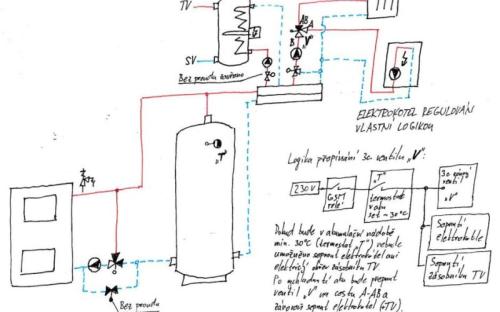 TV
SV
AB
A
B
"V"
Bez proudu
ELEKTROKOTEL REGULOVÁN
VLASTNÍ LOGIKOU
"T"
Logika přepínání 3c. ventilu "V":
230V
GSM
relé
"T"
termostat
v aku
set ~30°C
3c.
ventil
"V"
Sepnutí
elektrokotle
Sepnutí
zásobníku TV
Pokud bude v akumulační nádobě
min. 30°C (termostat "T") nebude
umožněno sepnut elektrokotel ani
elektrický ohřev zásobníku TV
Po vychladnutí aku bude přepnut
ventil "V" na cestu A-AB a
zároveň sepnut elektrokotel (+TV).
Bez proudu